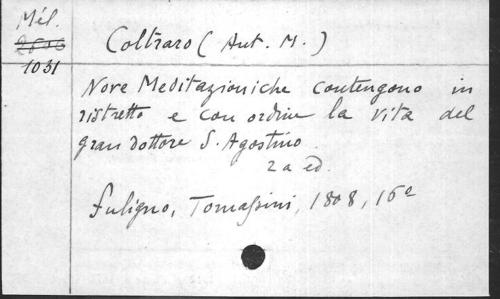 Mél.
2696
1031
Coltraro (Ant. M.)
Nove Meditazioni che contengono in
ristretto e con ordine la vita del
gran dottore S. Agostino.
2a ed.
Fuligno, Tomassini, 1808, 16e